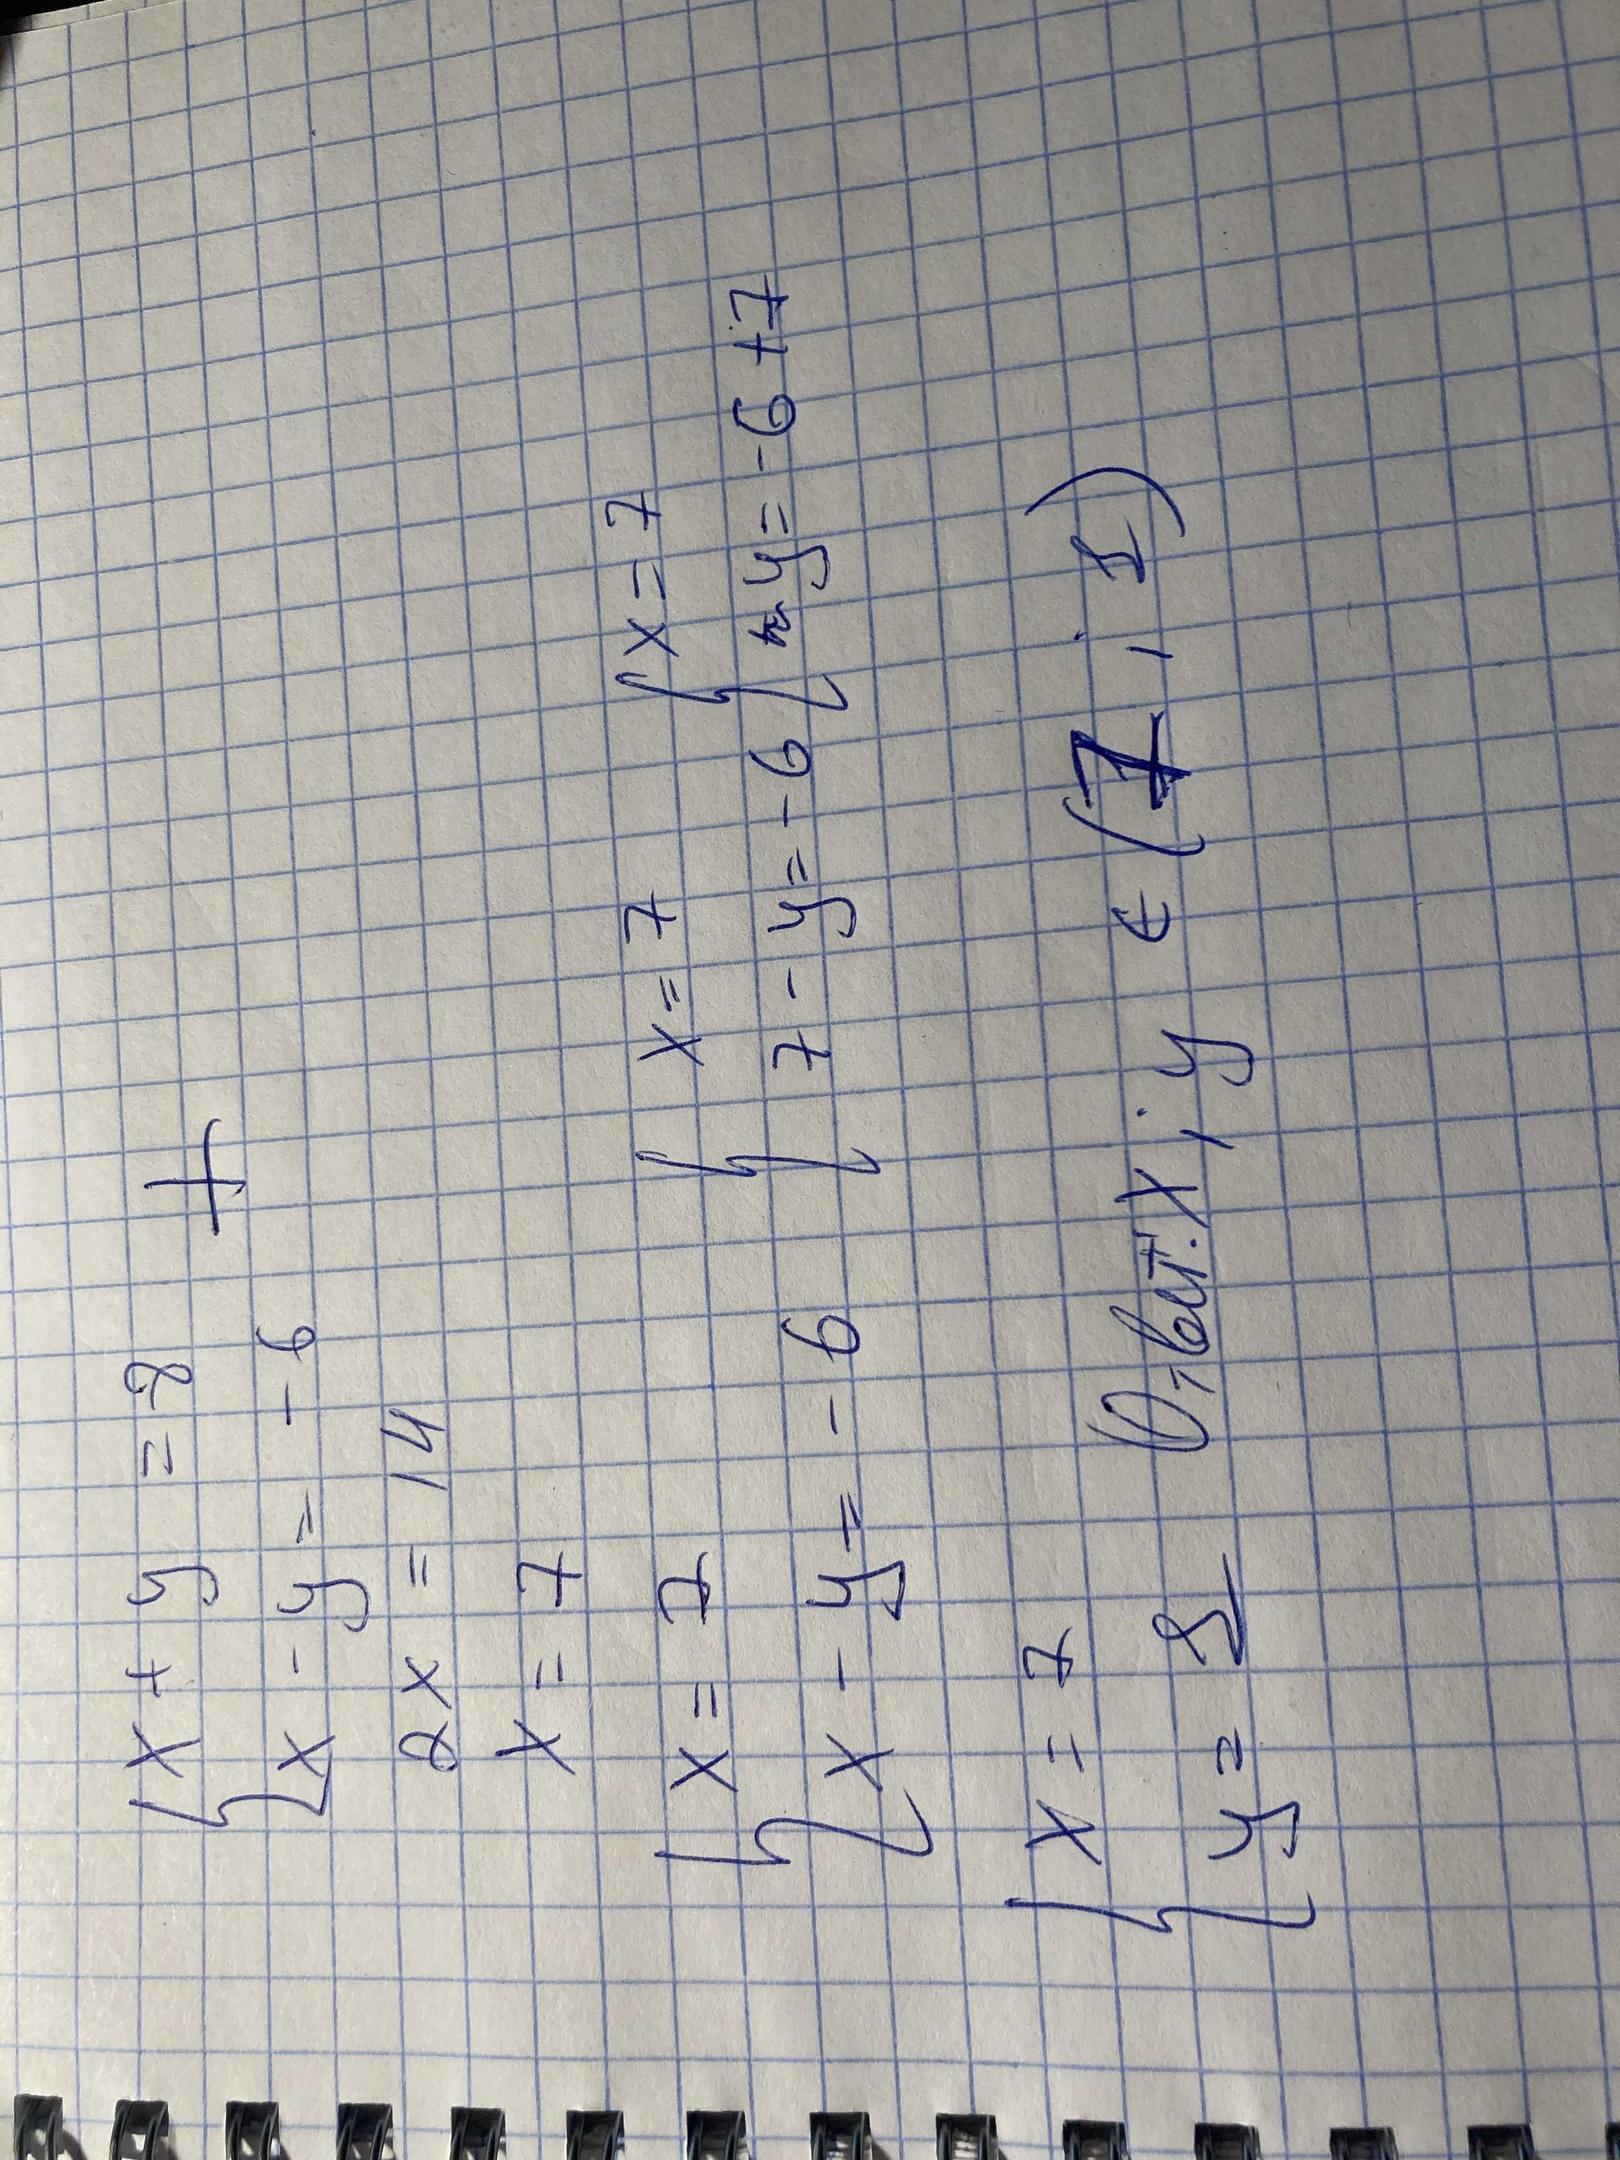 { x + y = 8 +
x - y = - 6
2x = 14
x = 7
{ x = 7 { x = 7 { x = 7
x - y = - 6 7 - y = - 6 y = -6 + 7
{ x = 7
y = 1 Ответ: x ; y ∈ (7 ; 1)